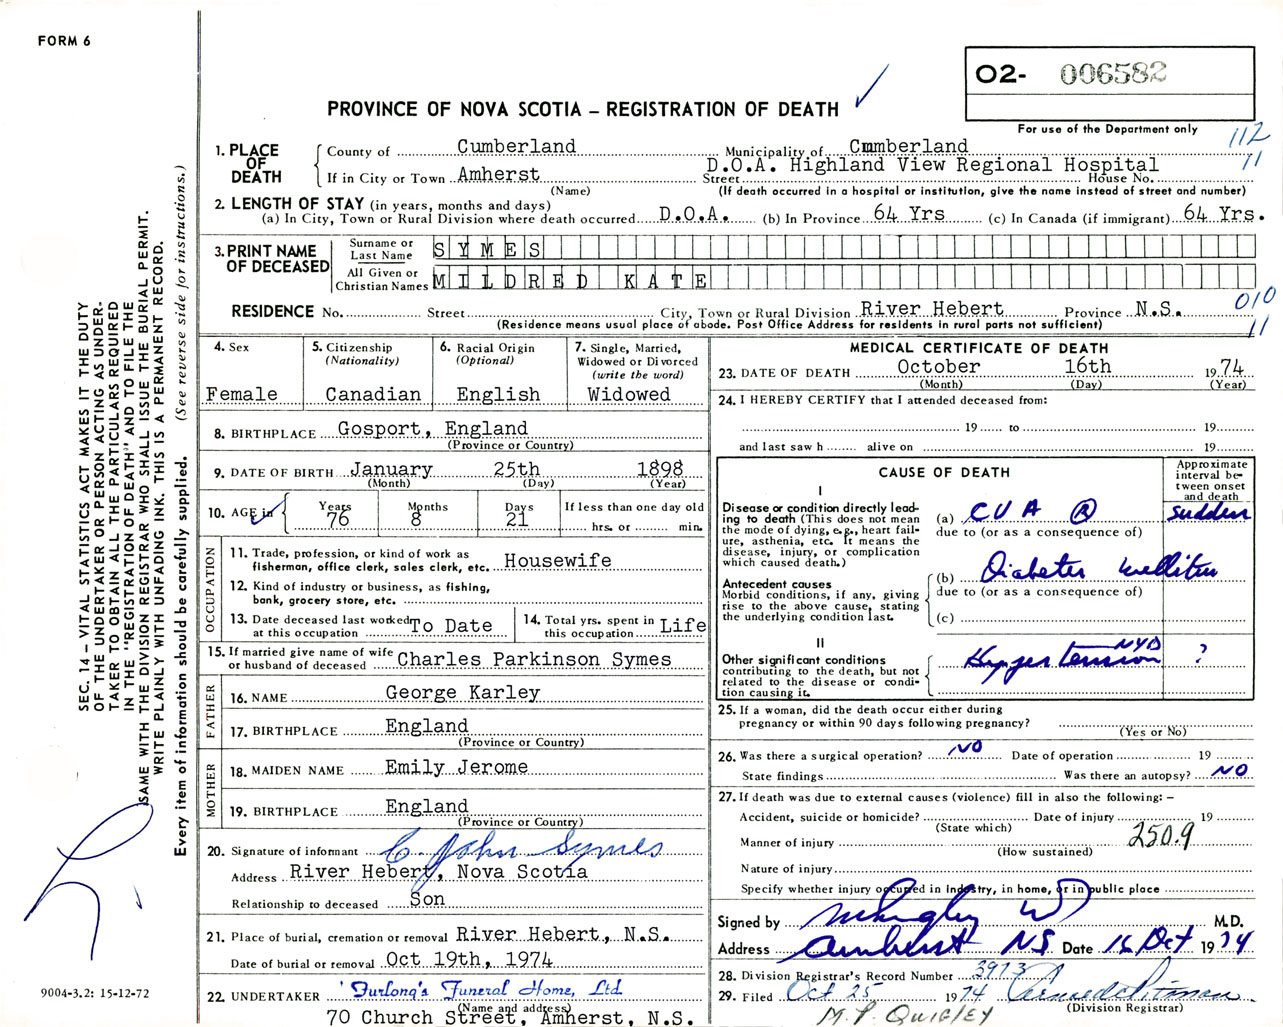 FORM 6
O2- 006582
PROVINCE OF NOVA SCOTIA – REGISTRATION OF DEATH ✓
For use of the Department only
112
11
1. PLACE OF DEATH
County of Cumberland Municipality of Cumberland
If in City or Town Amherst Street D.O.A. Highland View Regional Hospital House No.
(Name) (If death occurred in a hospital or institution, give the name instead of street and number)
2. LENGTH OF STAY (in years, months and days)
(a) In City, Town or Rural Division where death occurred D.O.A. (b) In Province 64 Yrs (c) In Canada (if immigrant) 64 Yrs.
3. PRINT NAME OF DECEASED
Surname or Last Name SYMES
All Given or Christian Names MILDRED KATE
RESIDENCE No. Street City, Town or Rural Division River Hebert Province N.S.
(Residence means usual place of abode. Post Office Address for residents in rural parts not sufficient)
010
11
4. Sex
Female
5. Citizenship
(Nationality)
Canadian
6. Racial Origin
(Optional)
English
7. Single, Married,
Widowed or Divorced
(write the word)
Widowed
8. BIRTHPLACE Gosport, England
(Province or Country)
9. DATE OF BIRTH January 25th 1898
(Month) (Day) (Year)
10. AGE in
Years 76
Months 8
Days 21
If less than one day old
hrs. or min.
OCCUPATION
11. Trade, profession, or kind of work as
fisherman, office clerk, sales clerk, etc. Housewife
12. Kind of industry or business, as fishing,
bank, grocery store, etc.
13. Date deceased last worked
at this occupation To Date
14. Total yrs. spent in
this occupation Life
15. If married give name of wife
or husband of deceased Charles Parkinson Symes
FATHER
16. NAME George Karley
17. BIRTHPLACE England
(Province or Country)
MOTHER
18. MAIDEN NAME Emily Jerome
19. BIRTHPLACE England
(Province or Country)
20. Signature of informant C. John Symes
Address River Hebert, Nova Scotia
Relationship to deceased Son
21. Place of burial, cremation or removal River Hebert, N.S.
Date of burial or removal Oct 19th, 1974
22. UNDERTAKER Furlong's Funeral Home, Ltd
(Name and address)
70 Church Street, Amherst, N.S.
MEDICAL CERTIFICATE OF DEATH
23. DATE OF DEATH October 16th 1974
(Month) (Day) (Year)
24. I HEREBY CERTIFY that I attended deceased from:
19 to 19
and last saw h alive on 19
CAUSE OF DEATH
Approximate
interval be-
tween onset
and death
I
Disease or condition directly lead-
ing to death (This does not mean
the mode of dying, e.g., heart fail-
ure, asthenia, etc. It means the
disease, injury, or complication
which caused death.)
(a) CVA Ⓡ sudden
due to (or as a consequence of)
Antecedent causes
Morbid conditions, if any, giving
rise to the above cause, stating
the underlying condition last.
(b) Diabetes mellitus
due to (or as a consequence of)
(c)
II
Other significant conditions
contributing to the death, but not
related to the disease or condi-
tion causing it.
Hypertension NYD ?
25. If a woman, did the death occur either during
pregnancy or within 90 days following pregnancy?
(Yes or No)
26. Was there a surgical operation? NO Date of operation 19
State findings Was there an autopsy? NO
27. If death was due to external causes (violence) fill in also the following: –
Accident, suicide or homicide? Date of injury 19
(State which)
Manner of injury 250.9
(How sustained)
Nature of injury
Specify whether injury occurred in Industry, in home, or in public place
Signed by M.D.
Address Amherst NS Date 16 Oct 1974
28. Division Registrar's Record Number 3973
29. Filed Oct 25 1974
(Division Registrar)
M.P. QUIGLEY
SEC. 14 – VITAL STATISTICS ACT MAKES IT THE DUTY
OF THE UNDERTAKER OR PERSON ACTING AS UNDER-
TAKER TO OBTAIN ALL THE PARTICULARS REQUIRED
IN THE "REGISTRATION OF DEATH" AND TO FILE THE
SAME WITH THE DIVISION REGISTRAR WHO SHALL ISSUE THE BURIAL PERMIT.
WRITE PLAINLY WITH UNFADING INK. THIS IS A PERMANENT RECORD.
Every item of information should be carefully supplied. (See reverse side for instructions.)
9004-3.2: 15-12-72